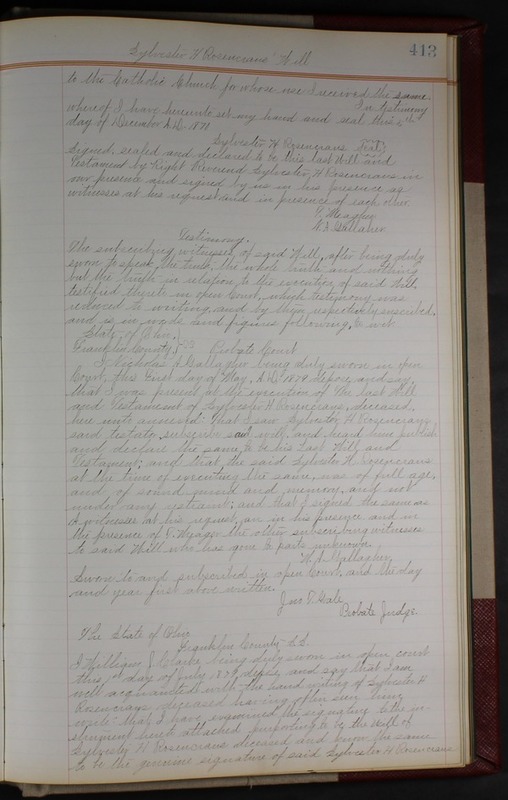 413
Sylvester H Rosencrans' Will
to the Catholic Church for whose use I received the same.
In testimony
whereof I have hereunto set my hand and seal this 5th
day of December A.D. 1871
Sylvester H Rosencrans
Signed, sealed and declared to be this last Will and
Testament by Right Reverend Sylvester H Rosencrans in
our presence and signed by us in his presence as
witnesses at his request and in presence of each other.
N. A. Gallagher
Testimony.
The subscribing witnesses of said Will, after being duly
sworn to speak the truth, the whole truth and nothing
but the truth in relation to the execution of said Will,
testified thereto in open Court, which testimony was
reduced to writing, and by them respectively subscribed,
and is in words and figures following, to wit.
State of Ohio,
Franklin County, } SS Probate Court
I Nicholas A Gallagher being duly sworn in open
Court, this first day of May, A.D. 1879 depose and say
that I was present at the execution of the last Will
and Testament of Sylvester H Rosencrans, deceased,
here unto annexed. That I saw Sylvester H Rosencrans
said testator subscribe said will and heard him publish
and declare the same to be his Last Will and
Testament; and that the said Sylvester H Rosencrans
at the time of executing the same, was of full age,
and of sound mind and memory, and not
under any restraint; and that I signed the same as
a witnesses at his request, an in his presence and in
the presence of the other subscribing witnesses
to said Will who has gone to parts unknown.
N. A. Gallagher,
Sworn to and subscribed in open Court, and the day
and year first above written.
Jno T. Gale
Probate Judge.
The State of Ohio
Franklin County S.S.
I William J. Clarke being duly sworn in open court
this 1st day of July 1879, depose and say that I am
well acquainted with the hand writing of Sylvester H
Rosencrans deceased having often seen him
write that I have examined the signature to the in-
strument hereto attached purporting to be the Will of
Sylvester H Rosencrans deceased and know the same
to be the genuine signature of said Sylvester H Rosencrans